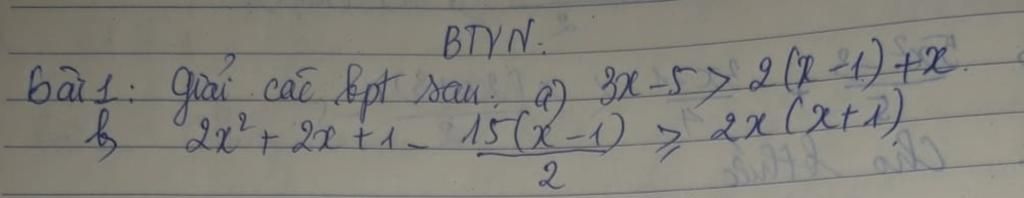 BTVN:
bài 1: Giải các bpt sau: a) 3x - 5 > 2(x - 1) + x
b) 2x² + 2x + 1 - 15(x - 1)/2 ≥ 2x(x + 1)